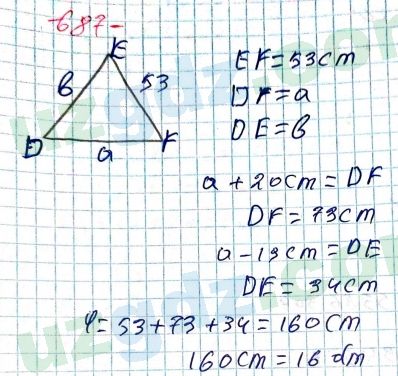 -687-
E
в
53
D
а
F
EF=53cm
DF=a
DE=в
a+20cm=DF
DF=73cm
a-19cm=DE
DE=34cm
P=53+73+34=160cm
160cm=16dm
uzgdz.com